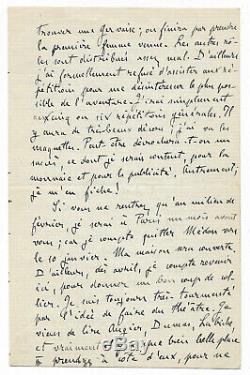 trouver une Gervaise ; on finira par prendre
la première femme venue. Les autres rôles
sont distribués assez mal. D'ailleurs
j'ai formellement refusé d'assister aux répétitions
pour me désintéresser le plus possible
de l'aventure. J'irai simplement
aux cinq ou six répétitions générales. Il y
aura de très beaux décors ; j'ai vu les
maquettes. Peut-être décrochera-t-on un
succès, ce dont je serai content, pour la
monnaie et pour la publicité. Autrement,
je m'en fiche !
Si vous ne rentrez qu'au milieu de
février, je serai à Paris un mois avant
vous ; car je compte quitter Médan vers
le 10 janvier. Ma maison sera couverte.
D'ailleurs, dès avril, je compte revenir
ici, pour donner un bon coup de collier.
Je suis toujours très tourmenté
par l'idée de faire du théâtre. Je
viens de lire Augier, Dumas, Labiche,
et vraiment il y a une bien belle place
à prendre, à côté d'eux, pour ne